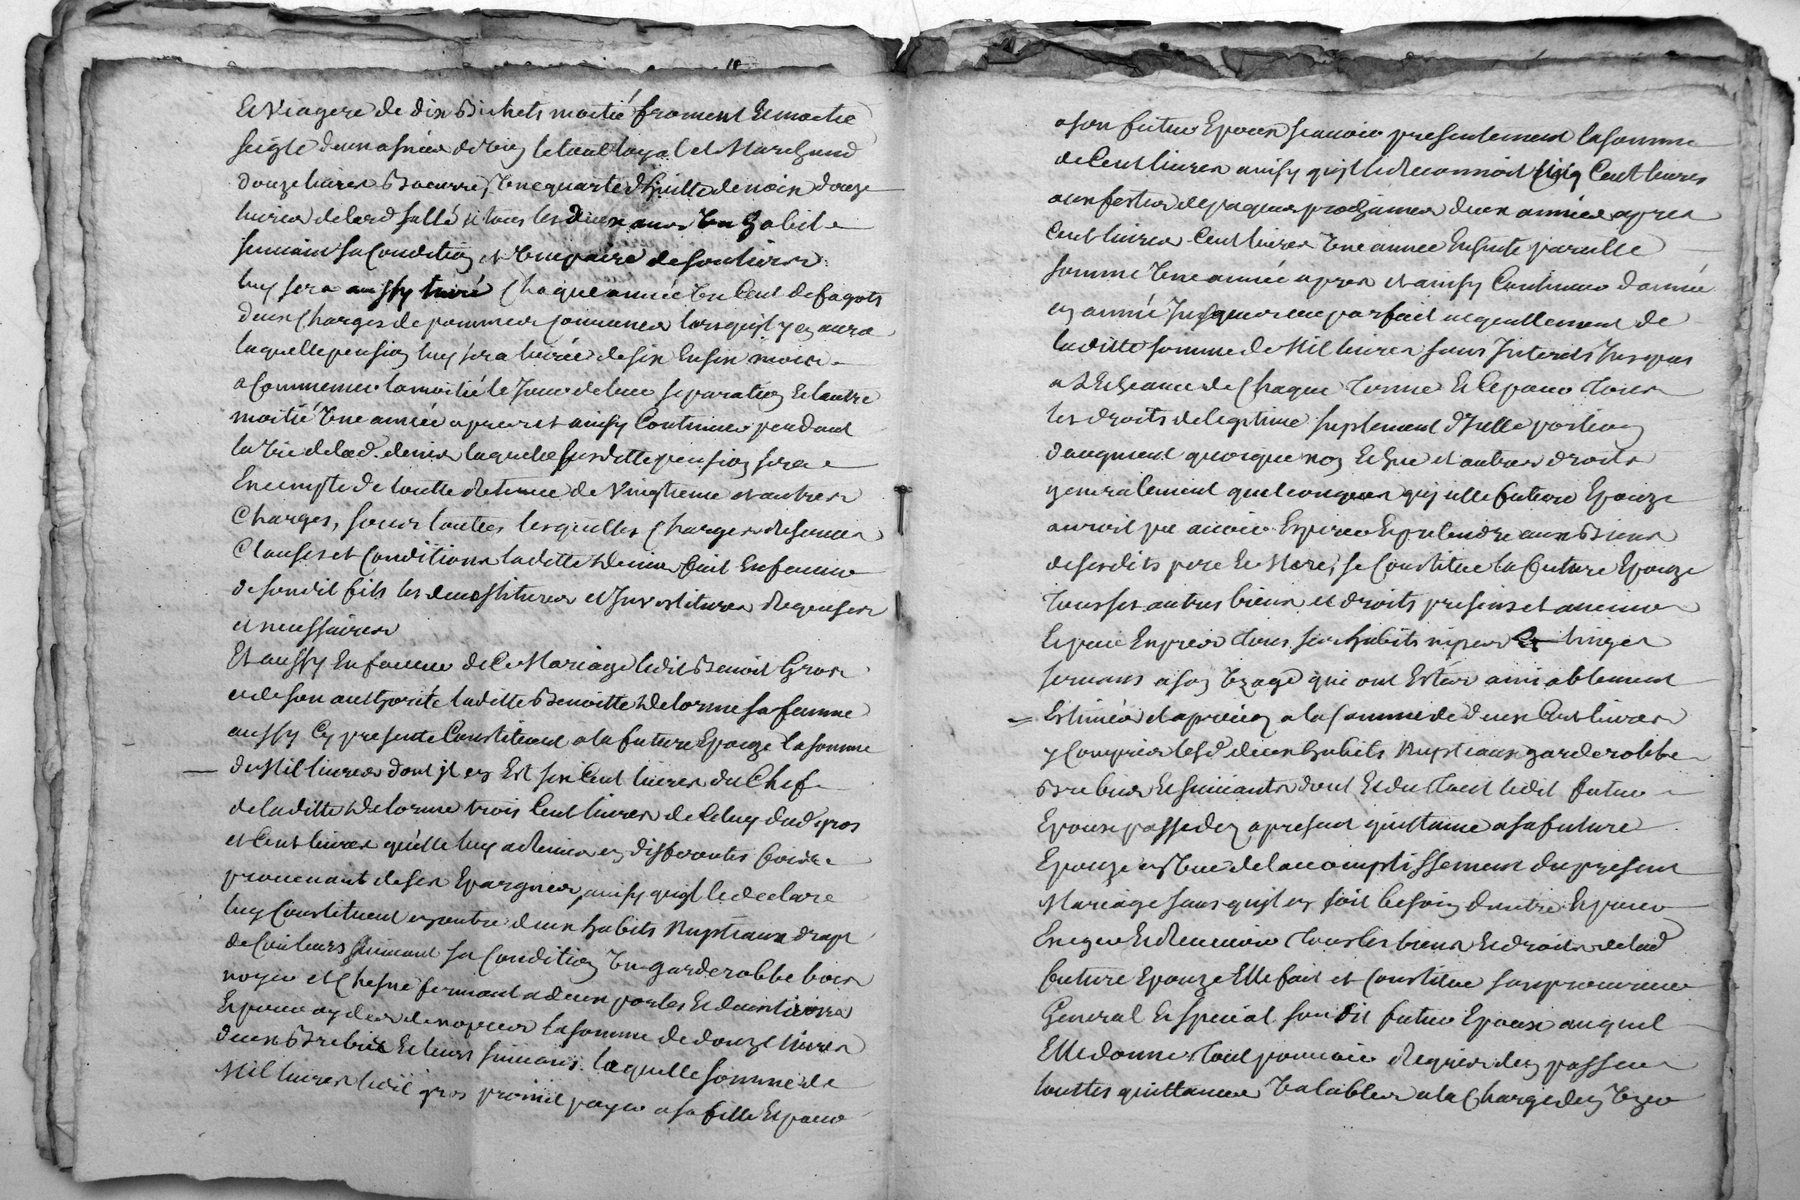 et viagere de dix Bichets moitié froment et moitie
seigle deux asnées de vin le tout loyal et Marchand
douze livres Baeurre, une quarte d'huille de noix douze
livres de lard sallé et tous les deux ans un habit
suivant sa Condition et une paire de souliers
luy sera aussy livré Chaque année un Cent de fagots
deux Charges de pommes communes lorsqu'il y en aura
laquelle pension luy sera livrée de six en six mois
a Commencer la moitié le Jour de leur separation et l'autre
moitié une année apres et ainsy Continuer pendant
la vie de lad. laquelle susditte pension sera
Exempte de toutte Retenue de vingtieme et autres
Charges, sous touttes lesquelles Charges Reserves
Clauses et Conditions laditte fait en faveur
de sondit fils les demostitures et Investitures Requises
et necessaires
Et aussy en faveur de Ce Mariage ledit Benoit Gros
et de son authorité laditte Benoitte Delorme sa femme
aussy Cy presente Constituent a la future Epouze la somme
de Mil livres dont il en Est six Cent livres du Chef
de laditte Delorme trois Cent livres de Celuy dud. gros
et Cent livres qu'elle luy a Remis en differantes fois
provenant de ses Epargnes, ainsy qu'il le declare
luy Constituent en outre deux habits Nuptiaux drap
de Couleurs suivant sa Condition un garderobbe bois
noyer et Chesne fermant a deux portes et deux tiroirs
Et pour ayder de nopces la somme de douze livres
deux Brebis et leurs suivants laquelle somme de
Mil livres ledit gros promet payer a sa fille Et pour
a son futur Epoux scavoir presentement la somme
de Cent livres ainsy qu'il le Reconnoit Cinq Cent livres
aux festes de paques prochaines d'eux années apres
Cent livres Cent livres une année Ensuite pareille
somme une année apres et ainsy Continuer d'année
en année Jusques au parfait acquittement de
laditte somme de Mil livres sans Interets Jusques
a l'Echeance de Chaque terme Et Ce pour tous
les droits de legitime suplement d'Icelle portion
d'augment quoique non Echue et autres droits
generalement quelconques qu'icelle future Epouze
auroit pu avoir Esperer Et pretendre aux Biens
de sesdits pere Et Mere, se Constitue la future Epouze
tous ses autres biens et droits presens et avenir
Et pour Enprés tous ses habits nipes Et linges
servans a son uzage qui ont Estés amiablement
Estimés et apreciés a la somme de deux Cent livres
y Compris lesd. deux habits Nuptiaux garderobbe
Brebis Et suivants dont Et du tout ledit futur
Epoux passe des apresent quittance a sa future
Epouze en vue de l'accomplissement du present
Mariage sans qu'il en soit besoin d'autre Et pour
Exiger Et Recevoir tous les biens Et droits de lad.
future Epouze Elle fait et Constitue son procureur
General Et special son dit futur Epoux auquel
Elle donne tout pouvoir Requis d'en passer
touttes quittances valables a la Charge d'en uzer